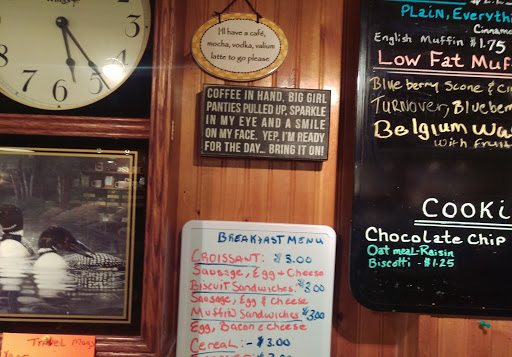 Hi! have a café,
mocha, vodka, valium
latte to go please
COFFEE IN HAND, BIG GIRL
PANTIES PULLED UP, SPARKLE
IN MY EYE AND A SMILE
ON MY FACE. YEP, I'M READY
FOR THE DAY... BRING IT ON!
BREAKFAST MENU
CROISSANT: $3.00
Sausage, Egg & Cheese
Biscuit Sandwiches: $3.00
Sausage, Egg & Cheese
Muffin Sandwiches $3.00
Egg, Bacon & Cheese
Cereal: - $3.00
Travel Mugs
Plain, Everythi
Cinnamo
English Muffin $1.75
Low Fat Muf
Blueberry Scone &
Turnover, Blueber
Belgium Wa
with Fruit
COOKI
Chocolate Chip
Oatmeal-Raisin
Biscotti - $1.25
12
1
2
3
4
5
6
7
8